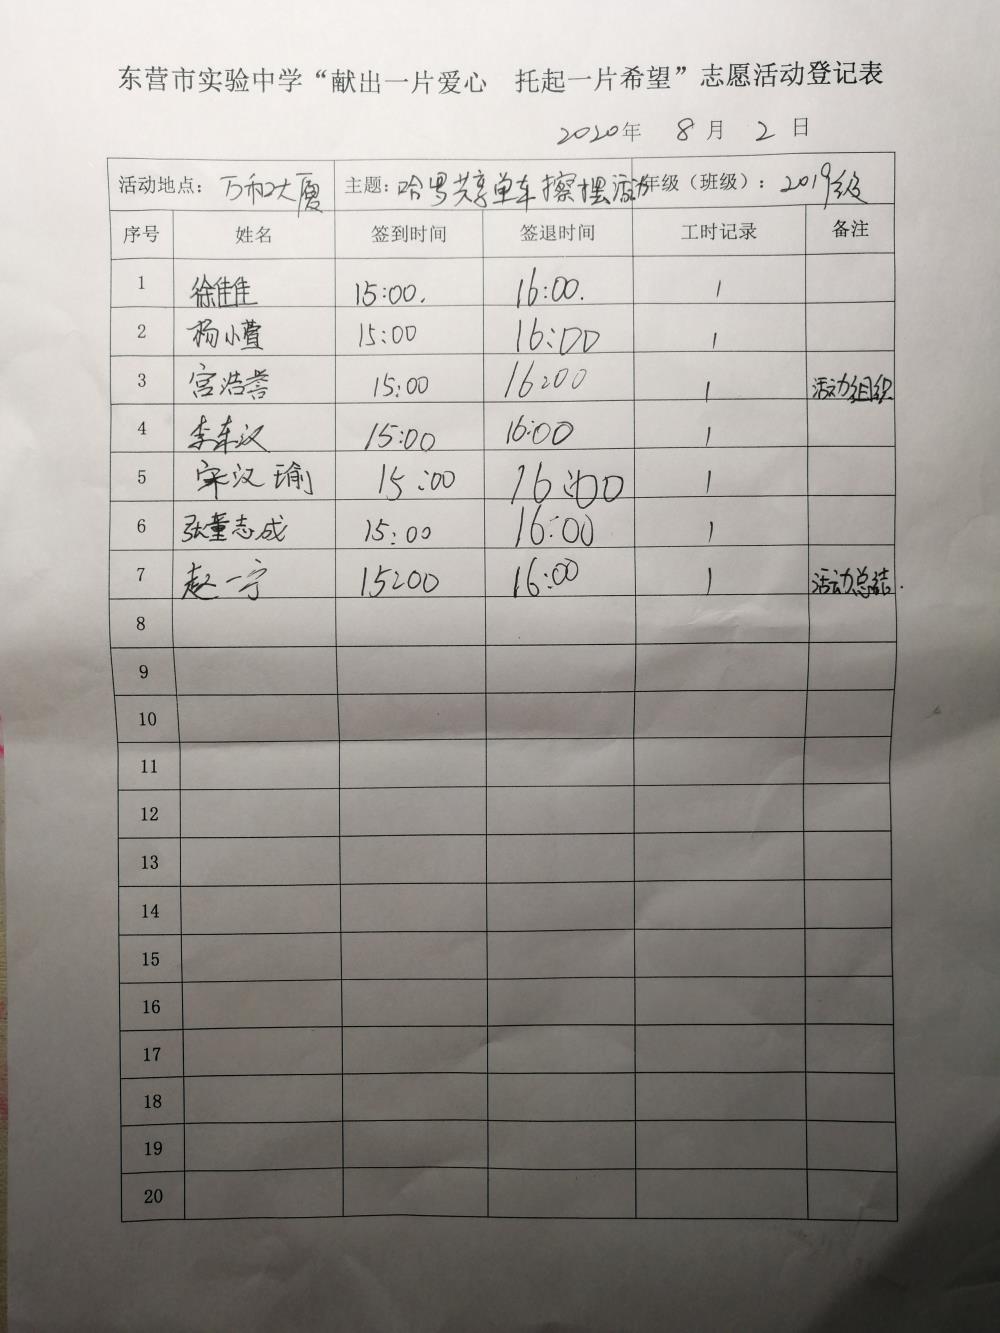 东营市实验中学“献出一片爱心 托起一片希望”志愿活动登记表
2020年 8月 2日
活动地点：万和大厦 主题：哈啰共享单车擦摆活动 年级（班级）：2019级
序号 姓名 签到时间 签退时间 工时记录 备注
1 徐佳佳 15:00. 16:00. 1
2 杨小萱 15:00 16:00 1
3 宫浩誉 15:00 16:00 1 活动组织
4 李车汉 15:00 16:00 1
5 宋汉瑜 15:00 16:00 1
6 张董志成 15:00 16:00 1
7 赵一宁 15:00 16:00 1 活动总结.
8
9
10
11
12
13
14
15
16
17
18
19
20